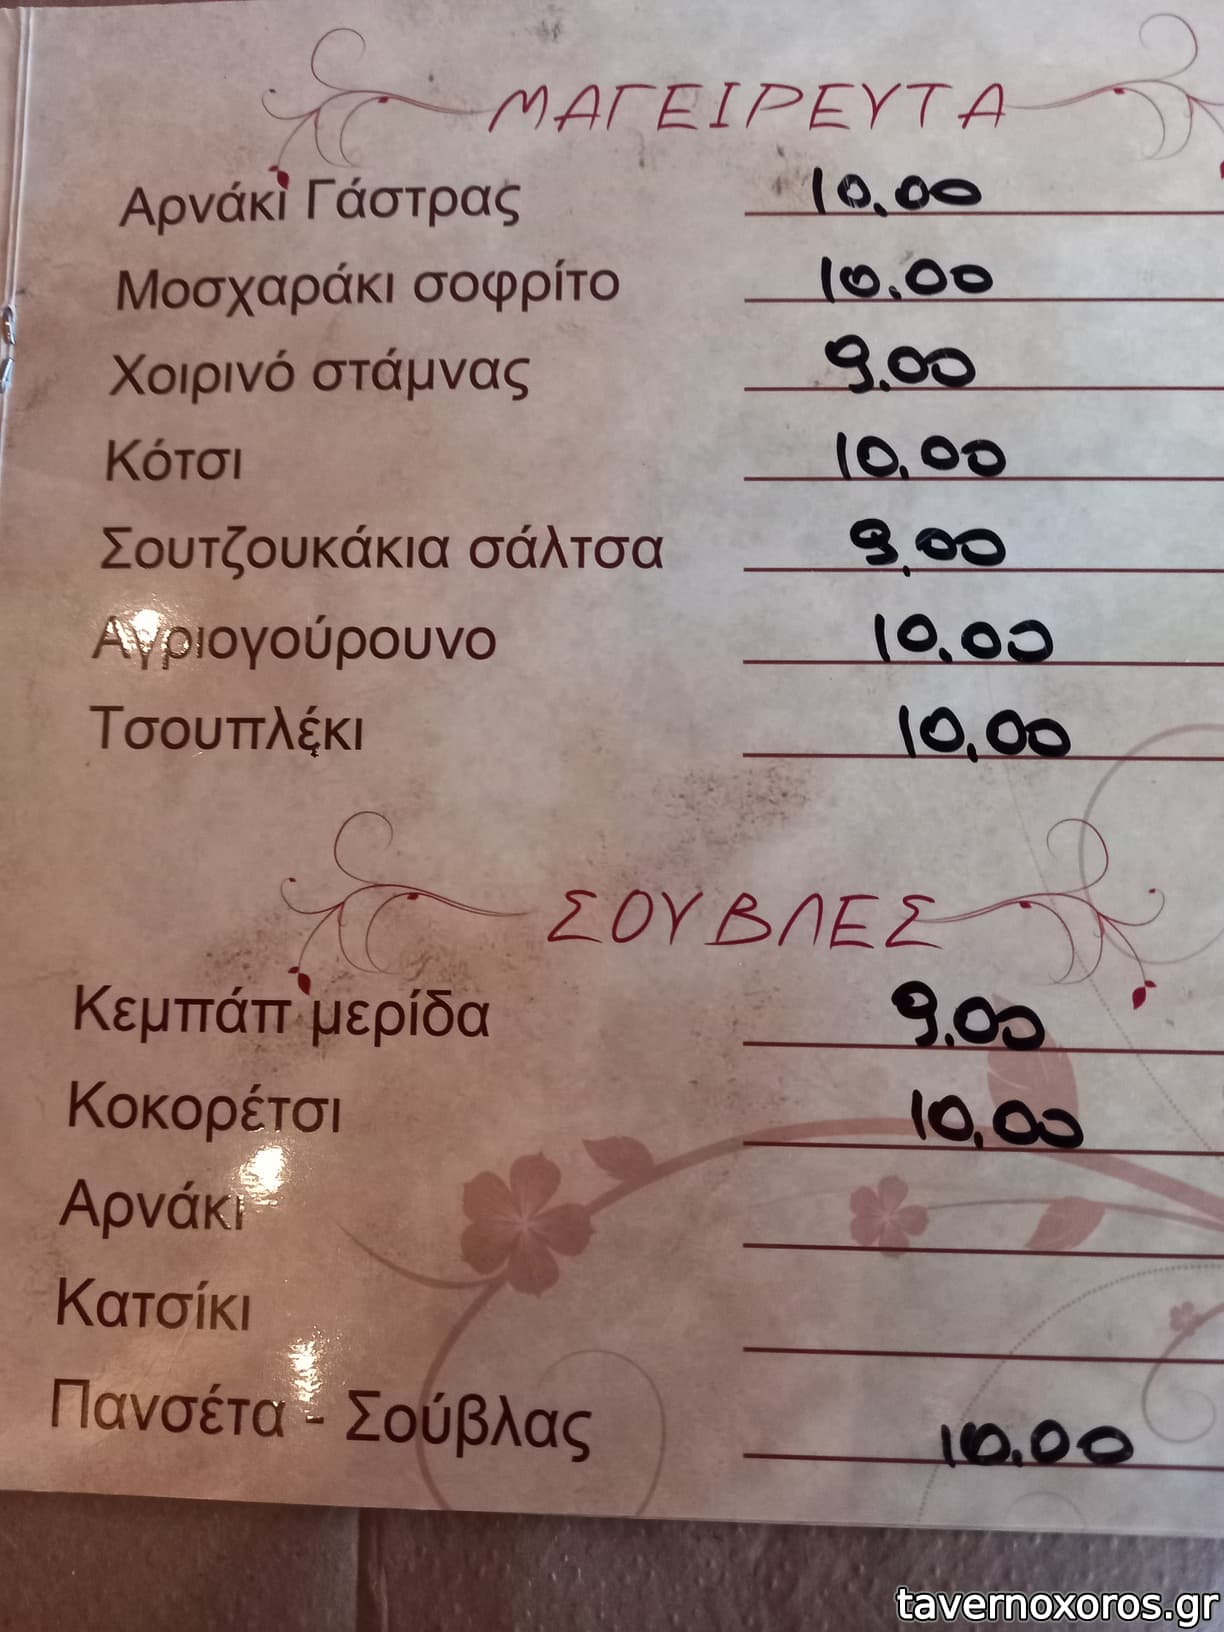 ΜΑΓΕΙΡΕΥΤΑ
Αρνάκι Γάστρας 10.00
Μοσχαράκι σοφρίτο 10.00
Χοιρινό στάμνας 9.00
Κότσι 10.00
Σουτζουκάκια σάλτσα 9.00
Αγριογούρουνο 10.00
Τσουπλέκι 10.00
ΣΟΥΒΛΕΣ
Κεμπάπ μερίδα 9.00
Κοκορέτσι 10.00
Αρνάκι
Κατσίκι
Πανσέτα - Σούβλας 10.00
tavernoxoros.gr